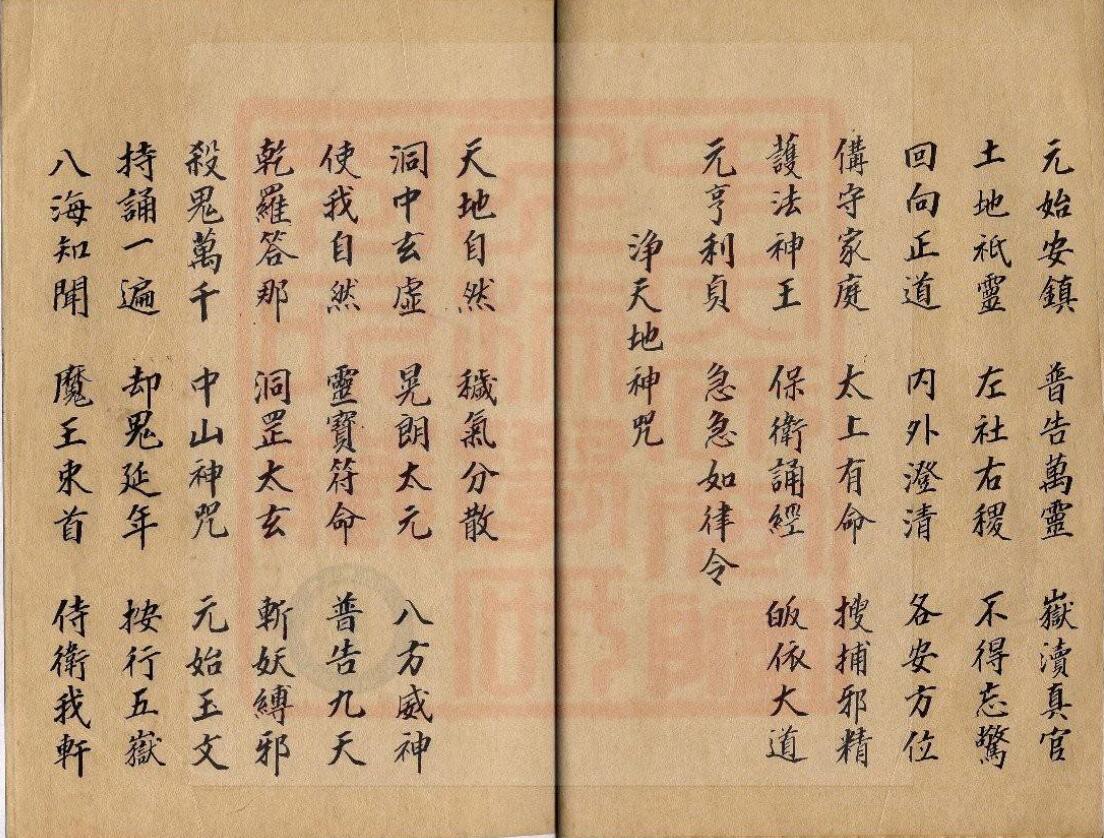 元始安鎮 普告萬靈 嶽瀆真官
土地祇靈 左社右稷 不得忘驚
回向正道 内外澄清 各安方位
備守家庭 太上有命 搜捕邪精
護法神王 保衛誦經 皈依大道
元亨利貞 急急如律令
浄天地神咒
天地自然 穢氣分散
洞中玄虛 晃朗太元 八方威神
使我自然 靈寶符命 普告九天
乾羅答那 洞罡太玄 斬妖縛邪
殺鬼萬千 中山神咒 元始玉文
持誦一遍 却鬼延年 按行五嶽
八海知聞 魔王束首 侍衛我軒